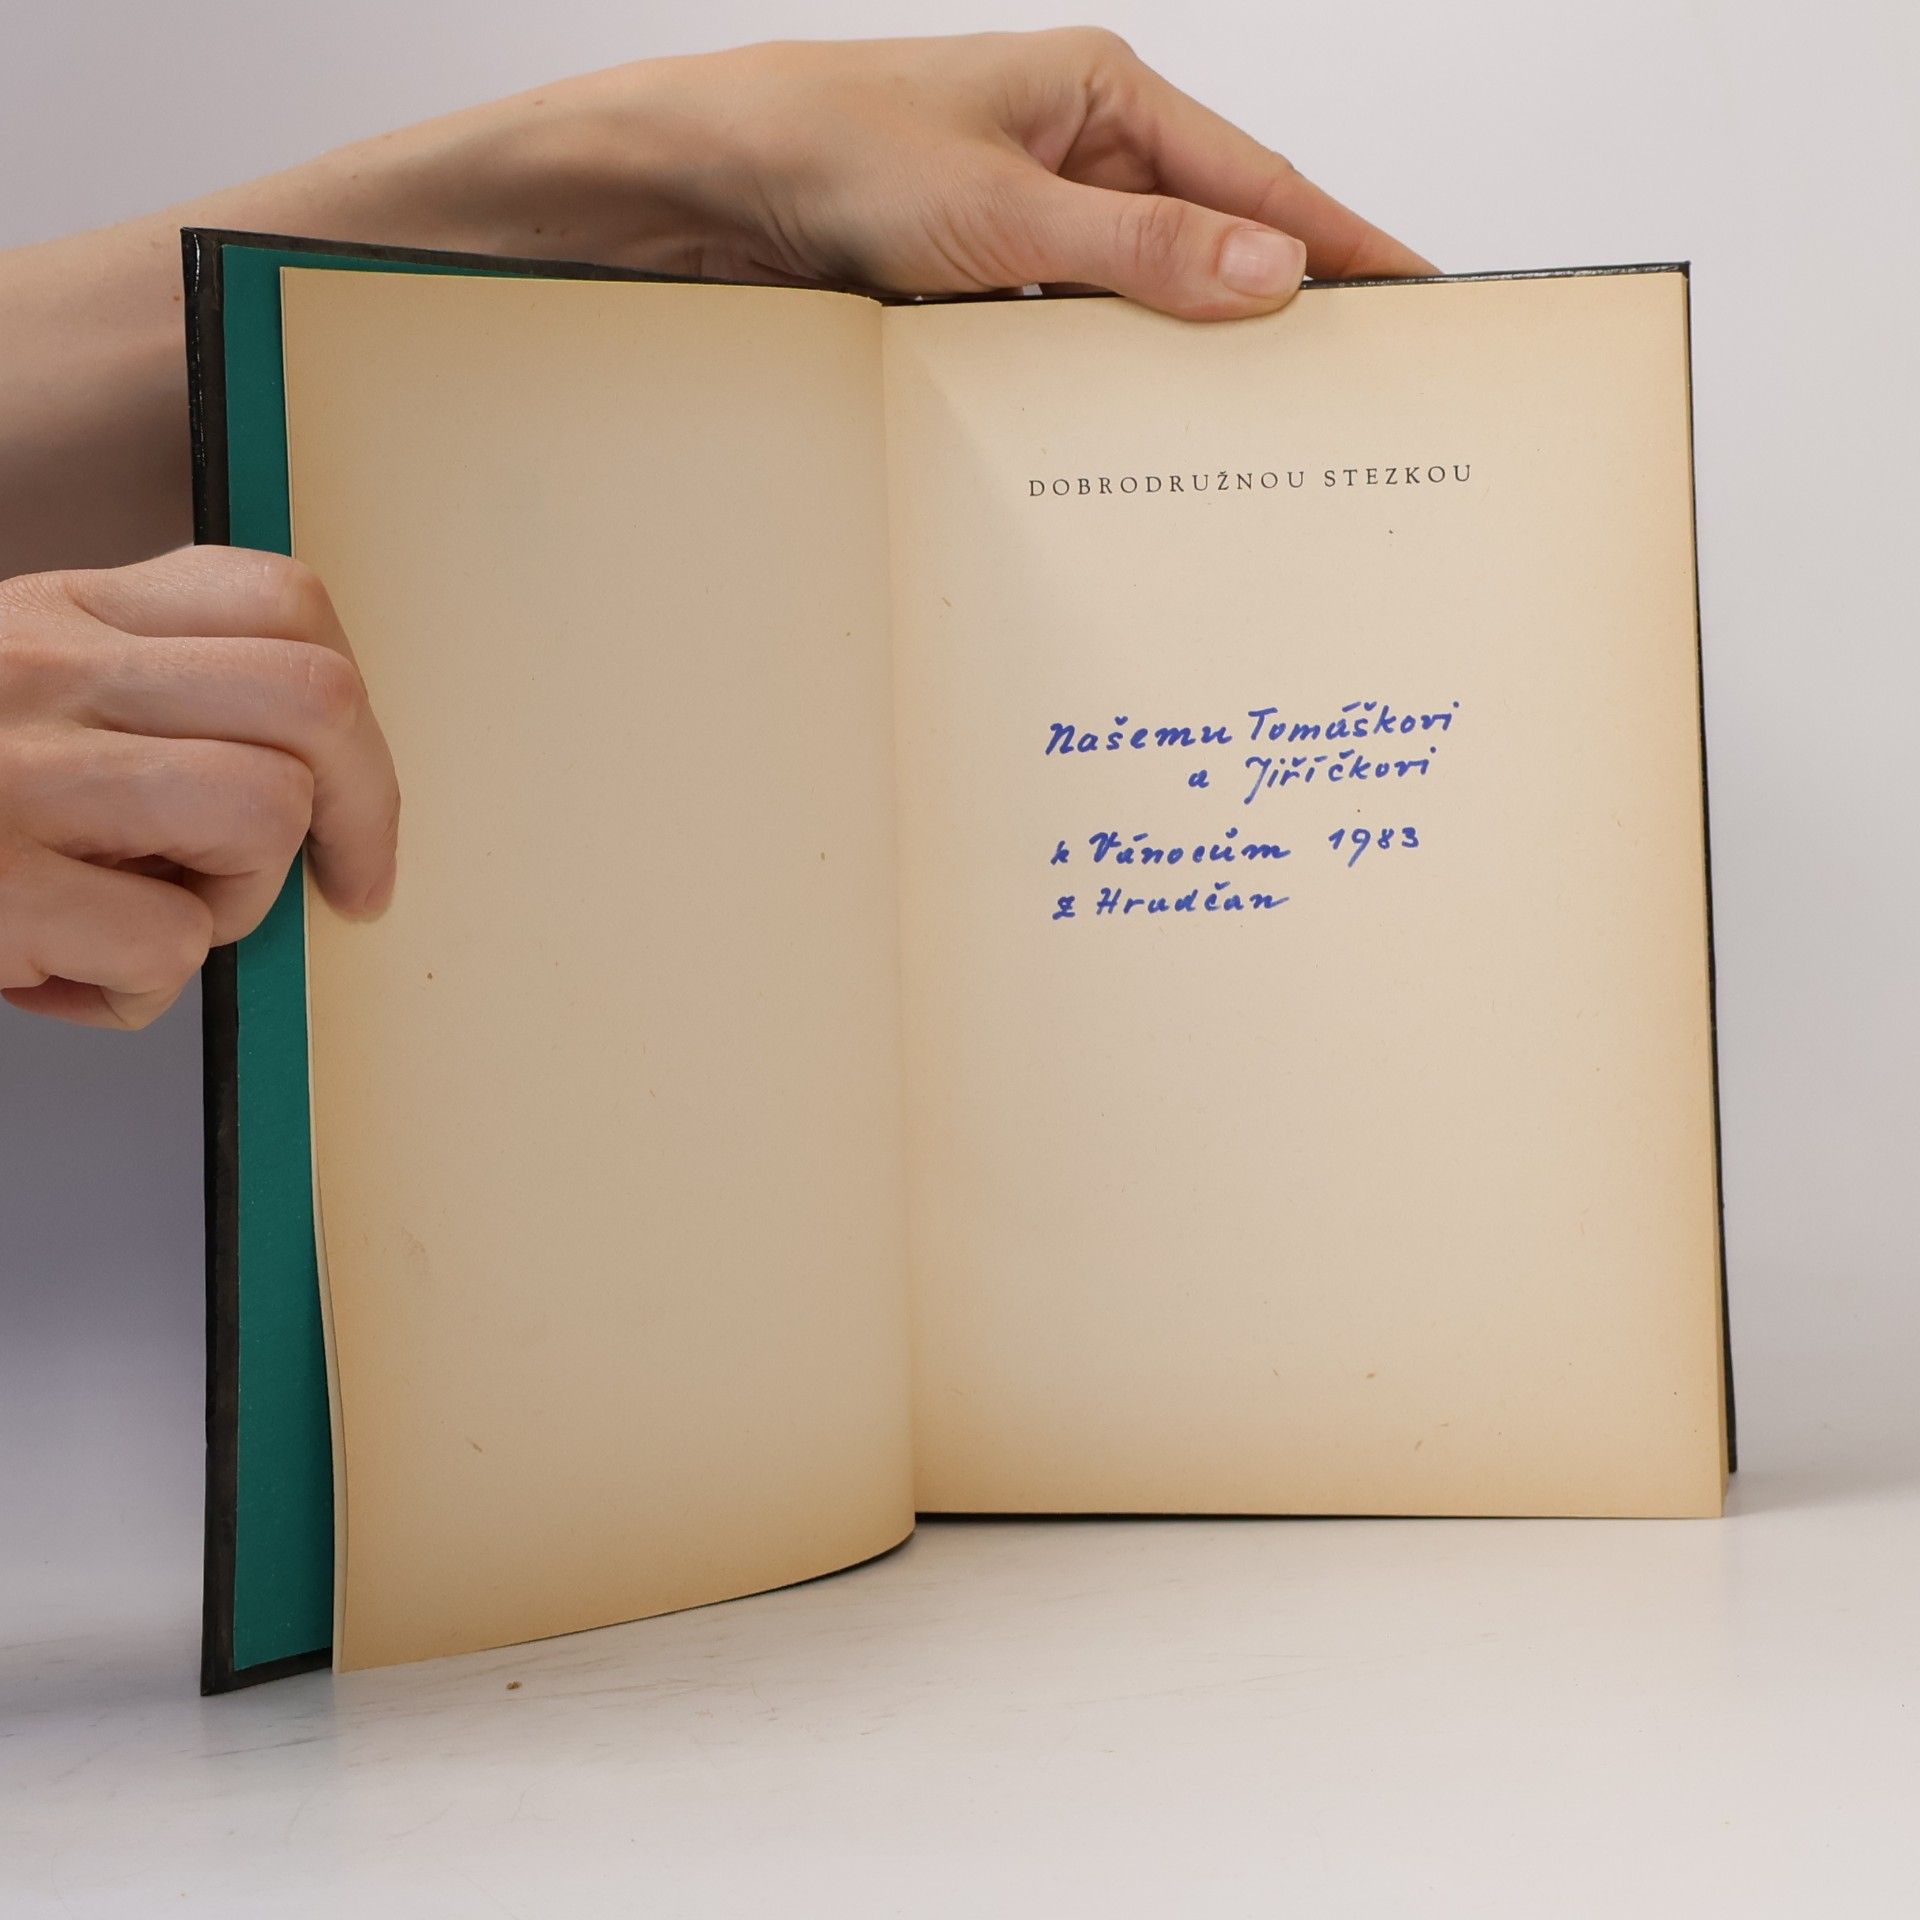 DOBRODRUŽNOU STEZKOU
Našemu Tomáškovi
a Jiříčkovi
k Vánocům 1983
z Hrudčan